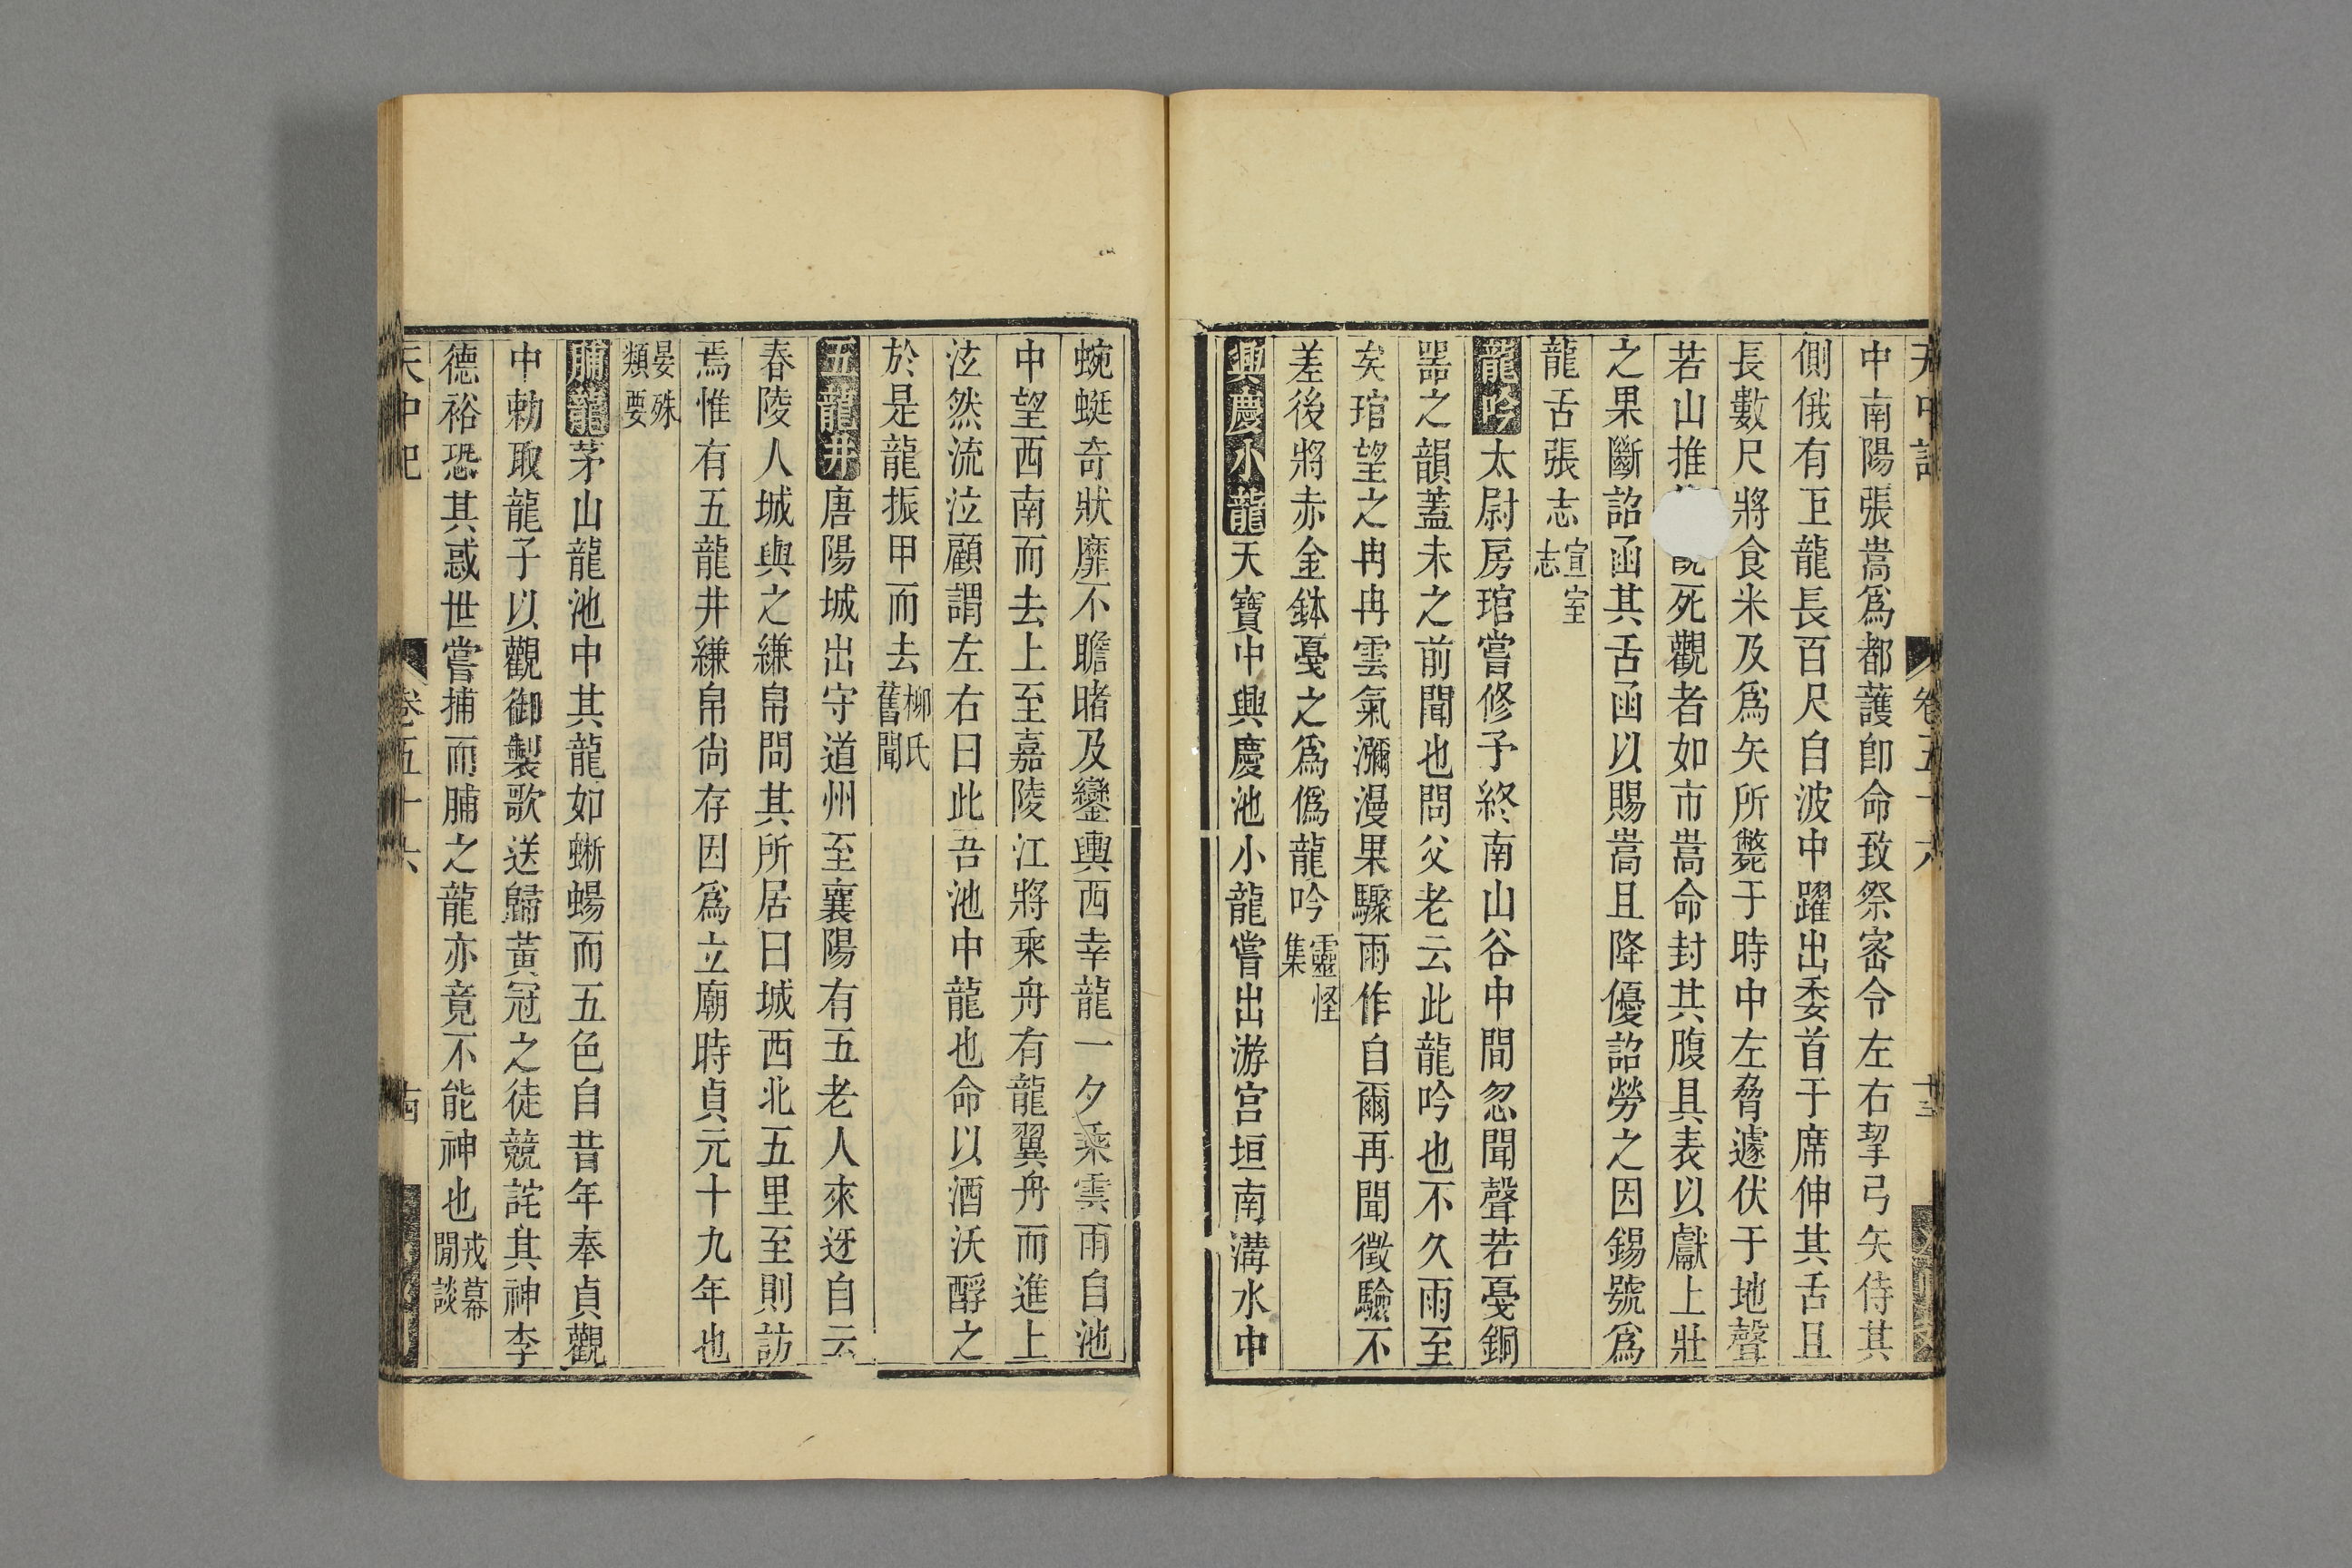 中南陽張嵩爲都護卽命致祭宻令左右挈弓矢侍其
側俄有巨龍長百尺自波中躍出委首于席伸其舌且
長數尺將食米及爲矢所斃于時中左脅遽伏于地聲
若山推旣死觀者如市嵩命封其腹具表以獻上壯
之果斷詔函其舌函以賜嵩且降優詔勞之因錫號爲
龍舌張志宣室志
龍吟太尉房琯嘗修予終南山谷中間忽聞聲若戞銅
噐之韻蓋未之前聞也問父老云此龍吟也不久雨至
矣琯望之冉冉雲氣瀰漫果驟雨作自爾再聞徵驗不
差後將赤金鉢戞之爲僞龍吟靈怪集
興慶小龍天寶中興慶池小龍嘗出游宫垣南溝水中
蜿蜒奇狀靡不瞻睹及鑾輿西幸龍一夕乘雲雨自池
中望西南而去上至嘉陵江將乘舟有龍翼舟而進上
泫然流泣顧謂左右曰此吾池中龍也命以酒沃酹之
於是龍振甲而去柳氏舊聞
五龍井唐陽城出守道州至襄陽有五老人來迓自云
春陵人城與之縑帛問其所居曰城西北五里至則訪
焉惟有五龍井縑帛尙存因爲立廟時貞元十九年也
晏殊類要
脯龍茅山龍池中其龍如蜥蜴而五色自昔年奉貞觀
中勅取龍子以觀御製歌送歸黃冠之徒競詫其神李
德裕恐其惑世嘗捕而脯之龍亦竟不能神也戎幕閒談
天中記
卷五十六